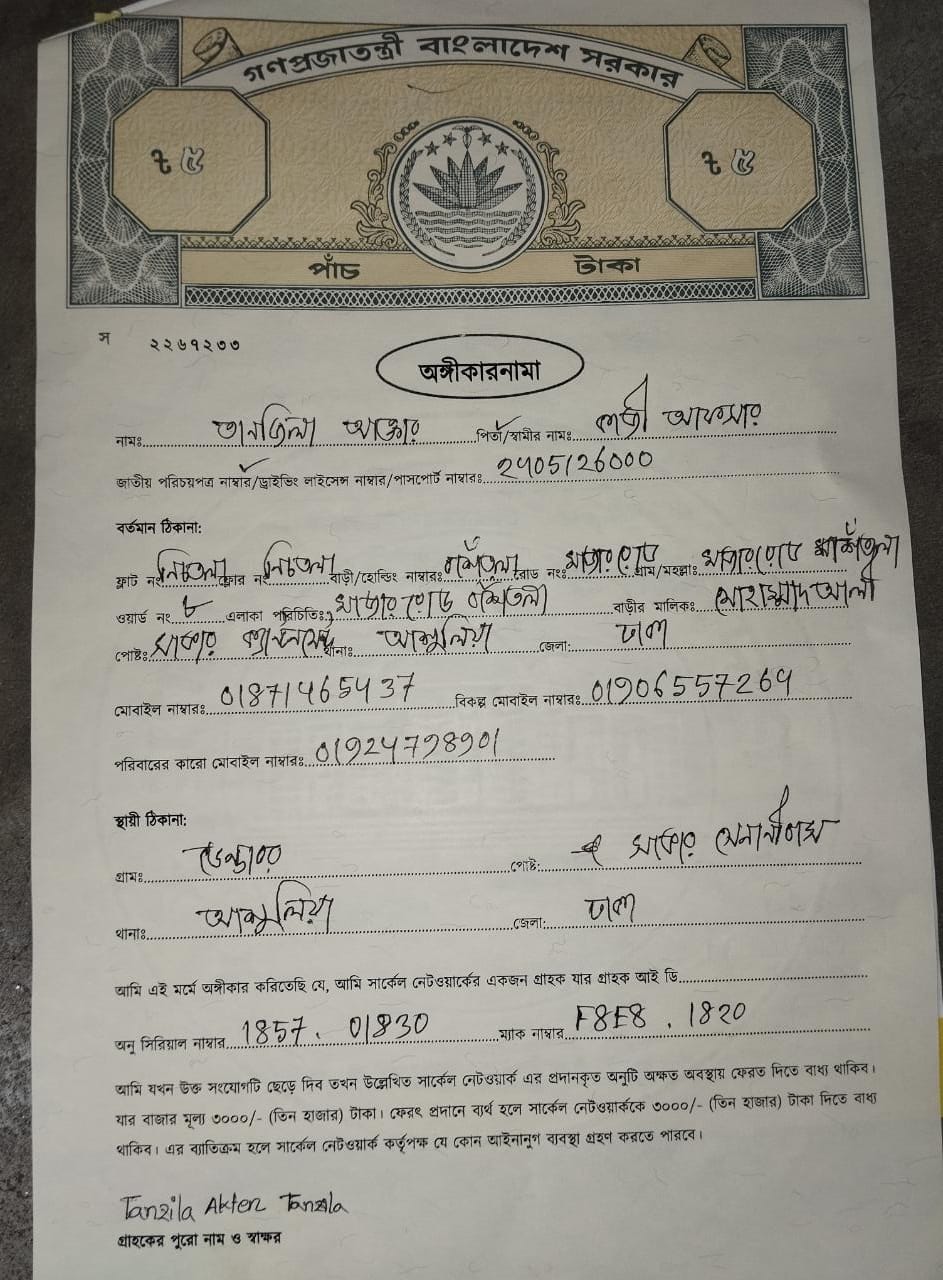 গণপ্রজাতন্ত্রী বাংলাদেশ সরকার
৳ ৫ ৳ ৫
পাঁচ টাকা
স ২২৬১২৩৩
অঙ্গীকারনামা
নামঃ তানজিলা আক্তার পিতা/স্বামীর নামঃ কাজী আফসার
জাতীয় পরিচয়পত্র নাম্বার/ড্রাইভিং লাইসেন্স নাম্বার/পাসপোর্ট নাম্বারঃ 2405126000
বর্তমান ঠিকানা:
ফ্লাট নং নিচতলা ফ্লোর নং নিচতলা বাড়ী/হোল্ডিং নাম্বারঃ রোড নং: মাজার রোড গ্রাম/মহল্লাঃ মাজার রোড
ওয়ার্ড নং ৮ এলাকা পরিচিতিঃ মাজার রোড বাড়ীর মালিকঃ মোহাম্মাদ আলী
পোষ্টঃ থানাঃ আশুলিয়া জেলা: ঢাকা
মোবাইল নাম্বারঃ 01871465437 বিকল্প মোবাইল নাম্বারঃ 01906557269
পরিবারের কারো মোবাইল নাম্বারঃ 01924798901
স্থায়ী ঠিকানা:
গ্রামঃ পোষ্ট:
থানাঃ আশুলিয়া জেলা: ঢাকা
আমি এই মর্মে অঙ্গীকার করিতেছি যে, আমি সার্কেল নেটওয়ার্কের একজন গ্রাহক যার গ্রাহক আই ডি
অনু সিরিয়াল নাম্বার 1857. 01830 ম্যাক নাম্বার F8E8. 1820
আমি যখন উক্ত সংযোগটি ছেড়ে দিব তখন উল্লেখিত সার্কেল নেটওয়ার্ক এর প্রদানকৃত অনুটি অক্ষত অবস্থায় ফেরত দিতে বাধ্য থাকিব।
যার বাজার মূল্য ৩০০০/- (তিন হাজার) টাকা। ফেরৎ প্রদানে ব্যর্থ হলে সার্কেল নেটওয়ার্ককে ৩০০০/- (তিন হাজার) টাকা দিতে বাধ্য
থাকিব। এর ব্যাতিক্রম হলে সার্কেল নেটওয়ার্ক কর্তৃপক্ষ যে কোন আইনানুগ ব্যবস্থা গ্রহণ করতে পারবে।
Tanzila Akter Tanzila
গ্রাহকের পুরো নাম ও স্বাক্ষর